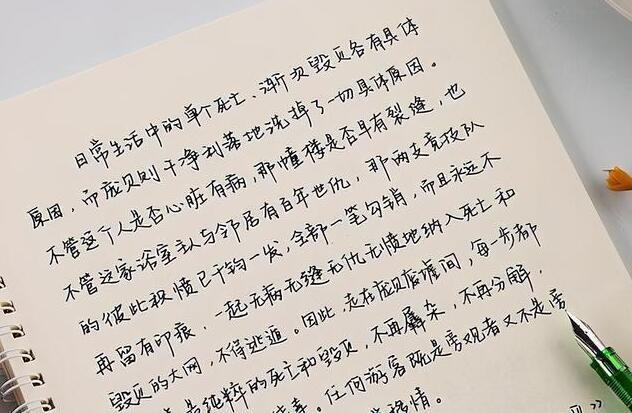 日常生活中的单个死亡、渐次毁灭各有具体
原因，而庞贝则干净利落地洗掉了一切具体原因。
不管这个人是否心脏有病，那幢楼是否早有裂缝，也
不管这家浴室主人与邻居有百年世仇，那两支竞技队
的彼此积愤已千钧一发，全部一笔勾销，而且永远不
再留有印痕，一起无病无缝无仇无愤地纳入死亡和
毁灭的大网，不得逃遁。因此，走在庞贝废墟间，每一步都
是纯粹的死亡和毁灭，不再羼杂，不再分解，
。任何游客既是旁观者又不是旁
移情。
》